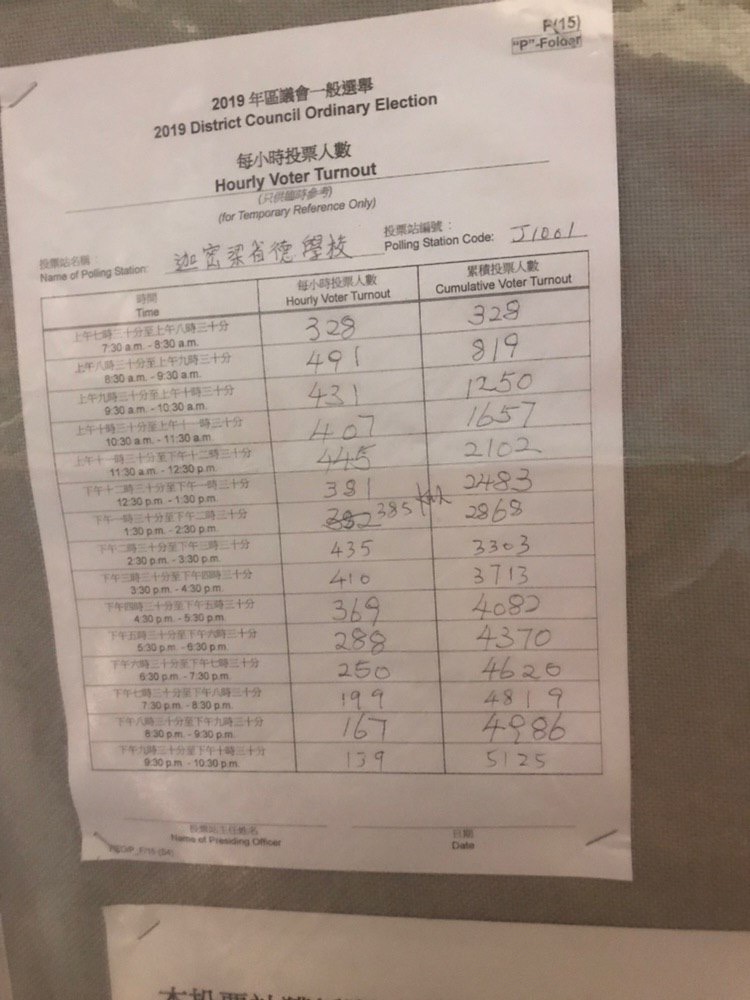 P(15)
"P"-Folder
2019 年區議會一般選舉
2019 District Council Ordinary Election
每小時投票人數
Hourly Voter Turnout
(只供臨時參考)
(for Temporary Reference Only)
投票站名稱：
Name of Polling Station: 迦密梁省德學校
投票站編號：
Polling Station Code: J1001
時間 每小時投票人數 累積投票人數
Time Hourly Voter Turnout Cumulative Voter Turnout
上午七時三十分至上午八時三十分
7:30 a.m. - 8:30 a.m. 328 328
上午八時三十分至上午九時三十分
8:30 a.m. - 9:30 a.m. 491 819
上午九時三十分至上午十時三十分
9:30 a.m. - 10:30 a.m. 431 1250
上午十時三十分至上午十一時三十分
10:30 a.m. - 11:30 a.m. 407 1657
上午十一時三十分至下午十二時三十分
11:30 a.m. - 12:30 p.m. 445 2102
下午十二時三十分至下午一時三十分
12:30 p.m. - 1:30 p.m. 381 2483
下午一時三十分至下午二時三十分
1:30 p.m. - 2:30 p.m. 385 2868
下午二時三十分至下午三時三十分
2:30 p.m. - 3:30 p.m. 435 3303
下午三時三十分至下午四時三十分
3:30 p.m. - 4:30 p.m. 410 3713
下午四時三十分至下午五時三十分
4:30 p.m. - 5:30 p.m. 369 4082
下午五時三十分至下午六時三十分
5:30 p.m. - 6:30 p.m. 288 4370
下午六時三十分至下午七時三十分
6:30 p.m. - 7:30 p.m. 250 4620
下午七時三十分至下午八時三十分
7:30 p.m. - 8:30 p.m. 199 4819
下午八時三十分至下午九時三十分
8:30 p.m. - 9:30 p.m. 167 4986
下午九時三十分至下午十時三十分
9:30 p.m. - 10:30 p.m. 139 5125
投票站主任姓名 日期
Name of Presiding Officer Date